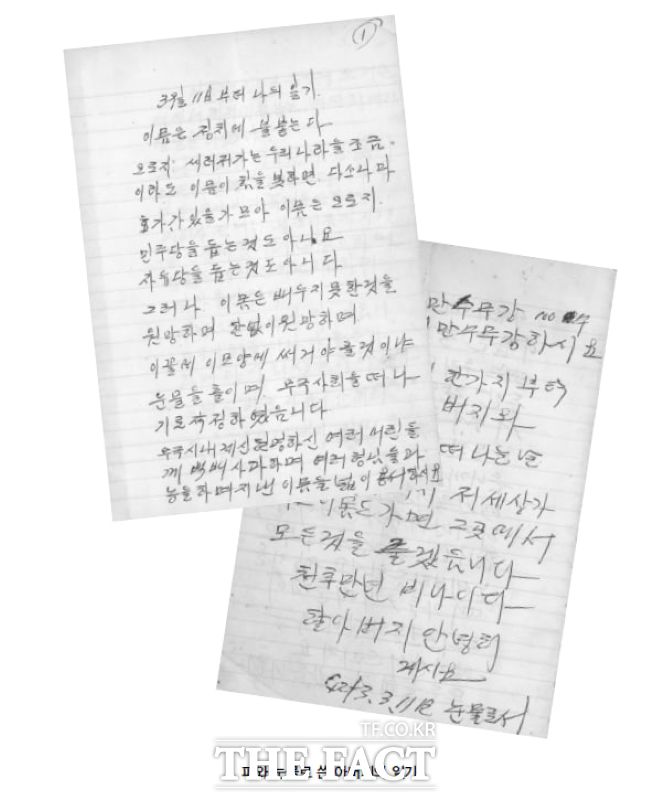 ①
3월 11日부터 나의 일기.
이몸은 정치에 불붙는다
오로지 쓰러져가는 우리나라를 조금.
이라도 이몸이 힘을 못하면 다소나마
효가가 있을가 모아 이몸은 오로지.
민주당을 돕는것도 아니요
자유당을 돕는것도 아니다
그러나 이몸은 배우지 못환것을
원망하며 한없이 원망하며
이꼴에 이모양에 써거야 올것이냐
눈물을 흘이며 무주사회를 떠나
기로 작정하였음니다
무주시내 계신 여러 어린들
께 백배 사과하며 여러 형님들과
능들하며 지낸 이몸을 널이 용서하시요
만수무강 no
만수무강하시요
한가지 부탁
버지와
떠나는넌
저세상가
이몸도 가면 그곳에서
모든것을 올겠읍니다
천후만년 비나이다
할아버지 안녕히
게시요
4293.3.11日 눈물로서
TF.CO.KR
THE FACT